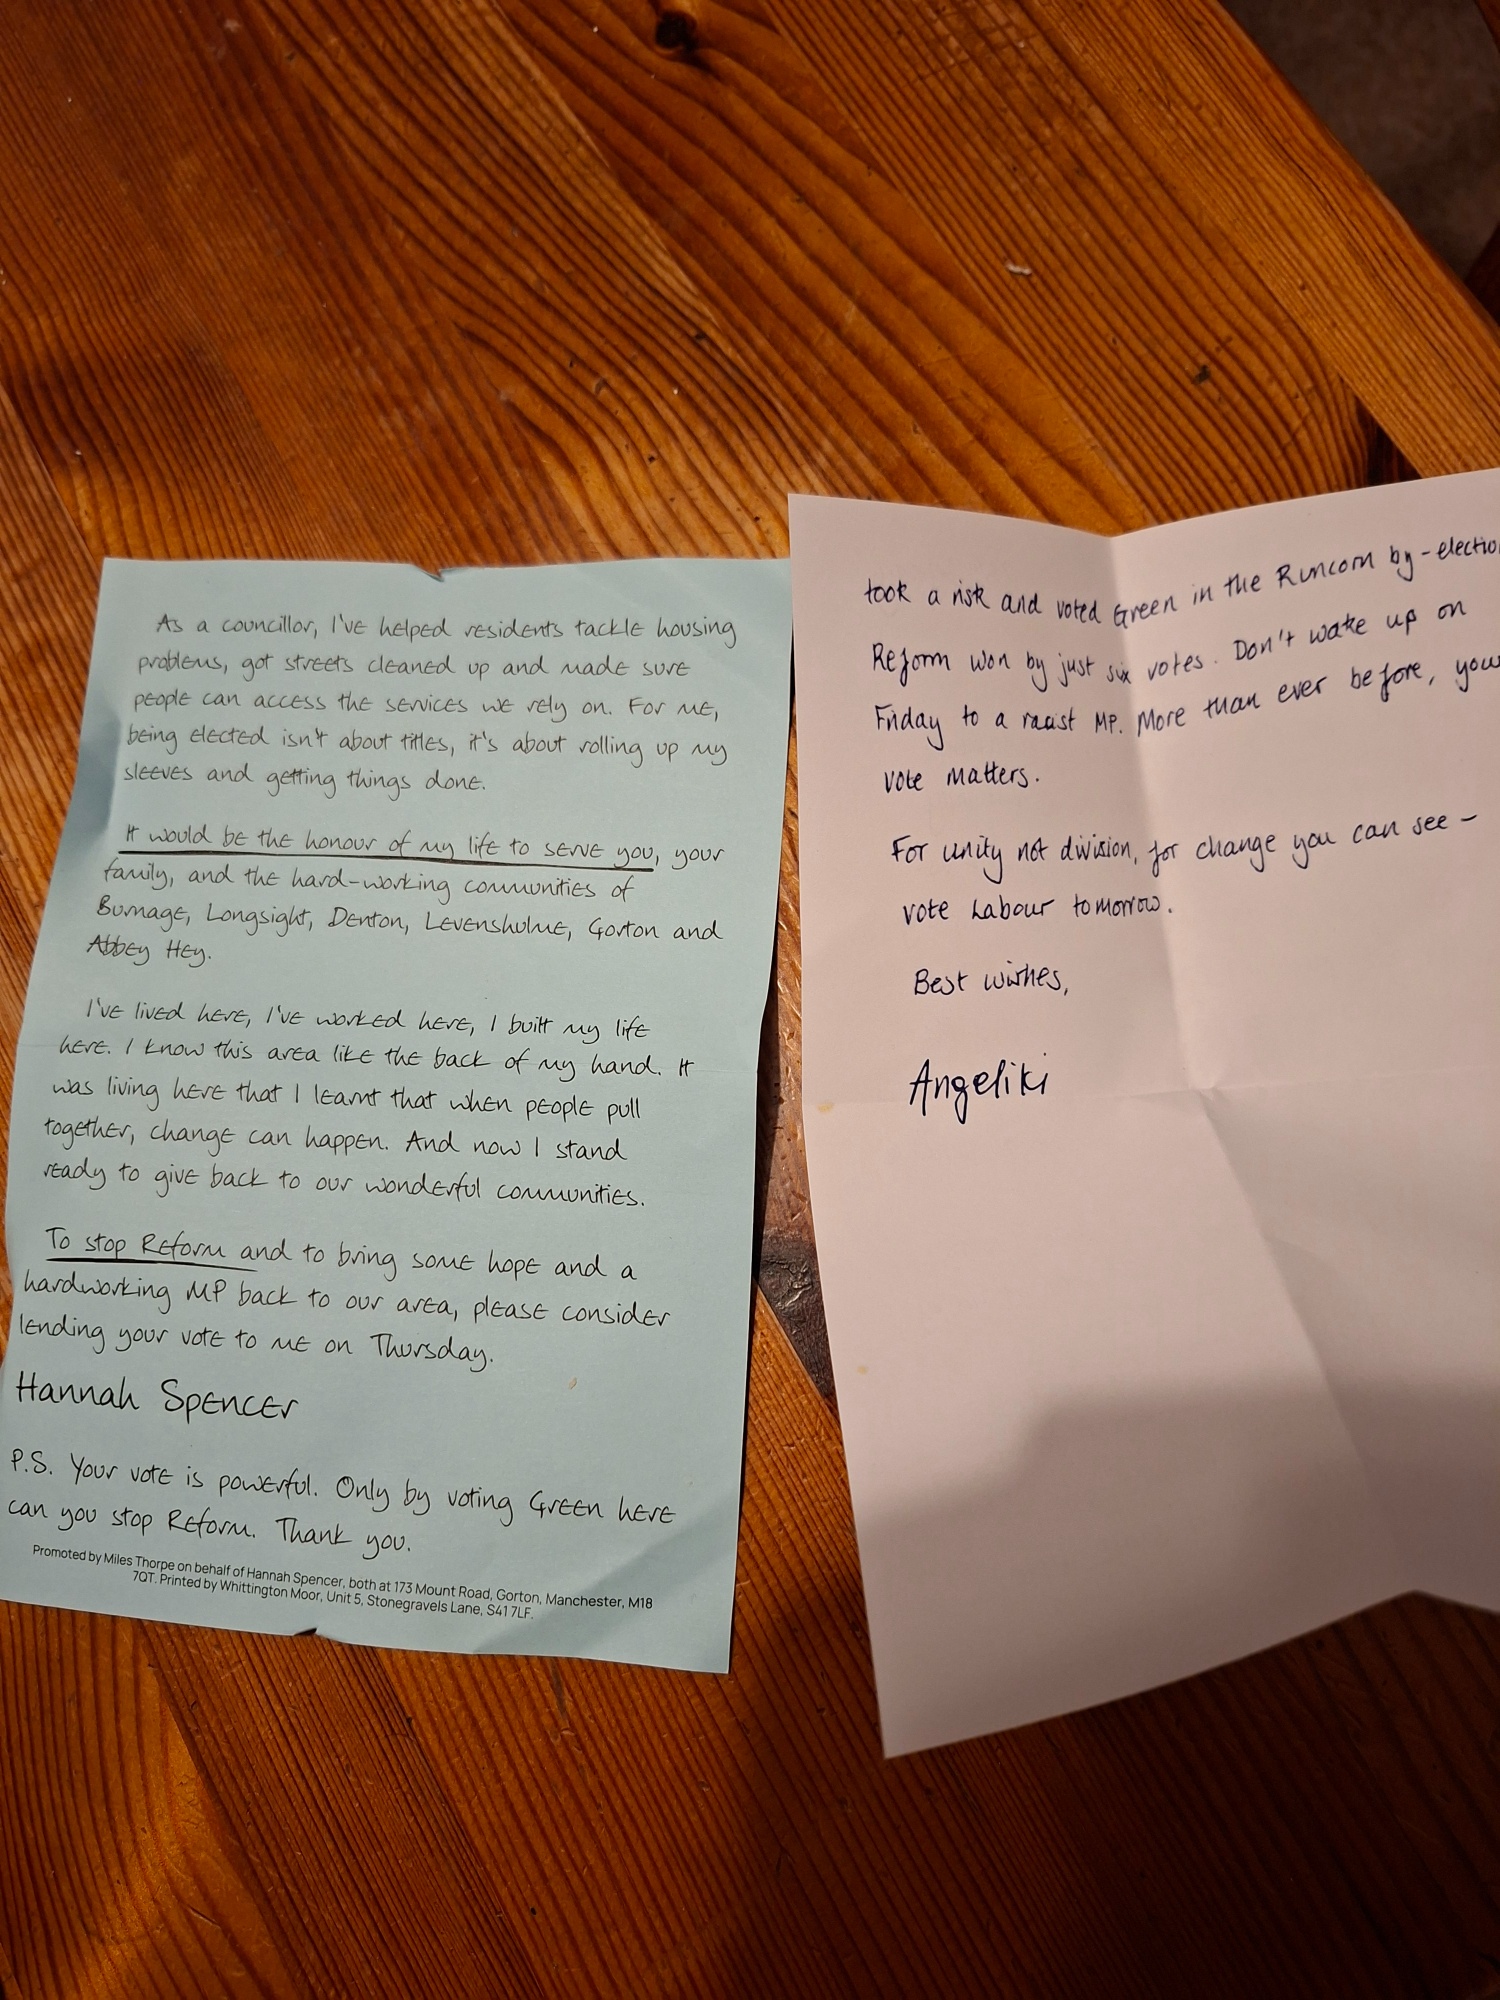 As a councillor, I've helped residents tackle housing
problems, got streets cleaned up and made sure
people can access the services we rely on. For me,
being elected isn't about titles, it's about rolling up my
sleeves and getting things done.
It would be the honour of my life to serve you, your
family, and the hard-working communities of
Burnage, Longsight, Denton, Levenshulme, Gorton and
Abbey Hey.
I've lived here, I've worked here, I built my life
here. I know this area like the back of my hand. It
was living here that I learnt that when people pull
together, change can happen. And now I stand
ready to give back to our wonderful communities.
To stop Reform and to bring some hope and a
hardworking MP back to our area, please consider
lending your vote to me on Thursday.
Hannah Spencer
P.S. Your vote is powerful. Only by voting Green here
can you stop Reform. Thank you.
Promoted by Miles Thorpe on behalf of Hannah Spencer, both at 173 Mount Road, Gorton, Manchester, M18
7QT. Printed by Whittington Moor, Unit 5, Stonegravels Lane, S41 7LF.
took a risk and voted Green in the Runcorn by-electio
Reform won by just six votes. Don't wake up on
Friday to a racist MP. More than ever before, your
vote matters.
For unity not division, for change you can see -
vote Labour tomorrow.
Best wishes,
Angeliki